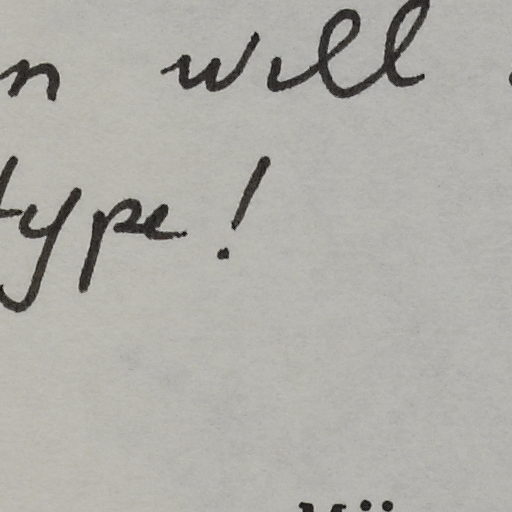 n will
type!